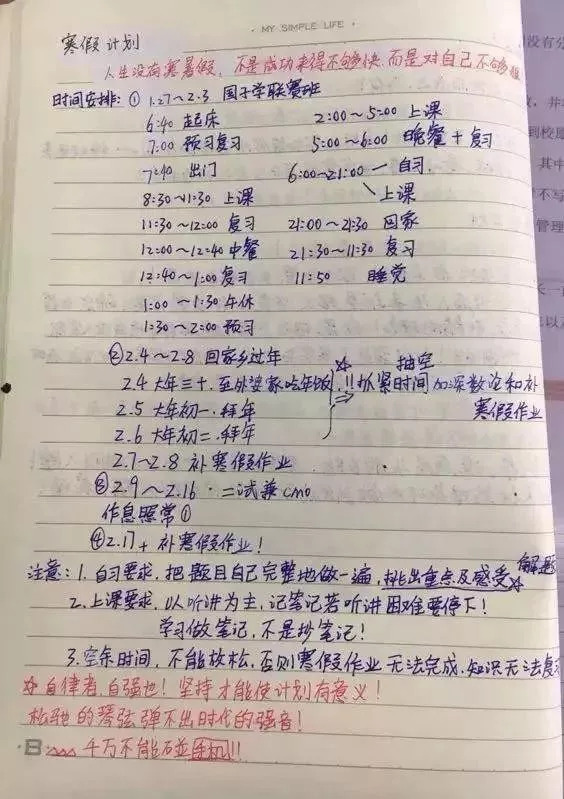 · MY SIMPLE LIFE ·
寒假计划
人生没有寒暑假，不是成功来得不够快，而是对自己不够狠
时间安排：① 1.27～2.3 国子学联赛班
6:40 起床 2:00～5:00 上课
7:00 预习复习 5:00～6:00 晚餐＋复习
7:40 出门 6:00～21:00 一自习
8:30～11:30 上课 上课
11:30～12:00 复习 21:00～21:30 回家
12:00～12:40 中餐 21:30～11:30 复习
12:40～1:00 复习 11:50 睡觉
1:00～1:30 午休
1:30～2:00 预习
② 2.4～2.8 回家乡过年 ☆ 抽空
2.4 大年三十、至外婆家吃年饭，!! 抓紧时间加深数论和补
2.5 大年初一、拜年 ⇒ 寒假作业
2.6 大年初二、拜年
2.7～2.8 补寒假作业
③ 2.9～2.16 · 二试兼CMO
作息照常①
④ 2.17+ 补寒假作业！
注意：1. 自习要求，把题目自己完整地做一遍，挑出重点及感受☆ 解题
2. 上课要求，以听讲为主，记笔记若听讲困难要停下！
学习做笔记，不是抄笔记！
3. 空余时间，不能放松，否则寒假作业无法完成，知识无法复
☆ 自律者，自强也！坚持才能使计划有意义！
松弛的琴弦弹不出时代的强音！
B 千万不能碰手机!!!
没有分
并
到校
其中
不写
管理
长一
以